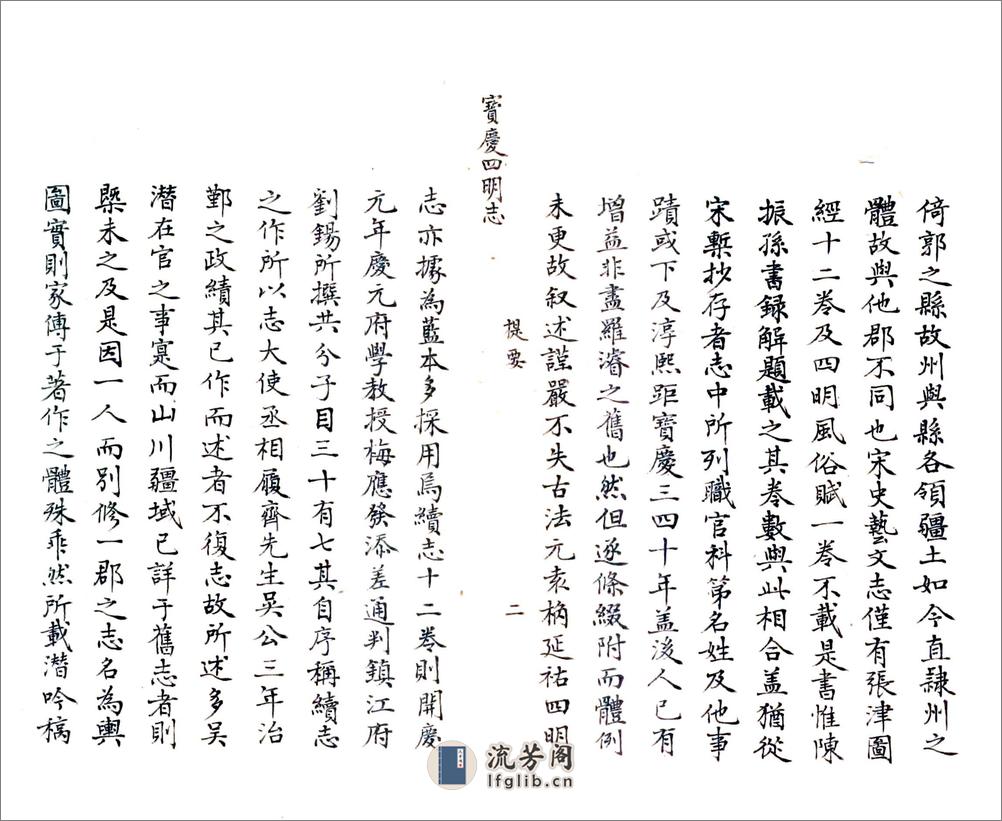 倚郭之縣故州與縣各領疆土如今直隷州之
體故與他郡不同也宋史藝文志僅有張津圖
經十二巻及四明風俗賦一巻不載是書惟陳
振孫書録解題載之其巻數與此相合蓋猶從
宋槧抄存者志中所列職官科第名姓及他事
蹟或下及淳熙距寶慶三四十年蓋後人已有
增益非盡羅濬之舊也然但逐條綴附而體例
未更故叙述謹嚴不失古法元袁桷延祐四明
寶慶四明志
提要
二
志亦據為藍本多採用焉續志十二巻則開慶
元年慶元府學教授梅應發添差通判鎮江府
劉錫所撰共分子目三十有七其自序稱續志
之作所以志大使丞相履齊先生吳公三年治
鄞之政績其已作而述者不復志故所述多吳
潛在官之事寔而山川疆域已詳于舊志者則
槩未之及是因一人而别修一郡之志名為輿
圖實則家傳于著作之體殊乖然所載潛吟稿
流芳阁
lfglib.cn